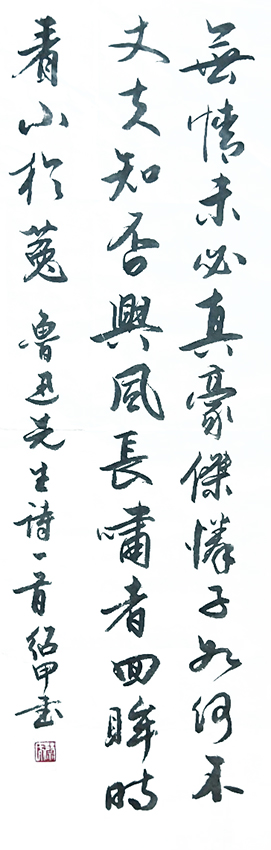 無情未必真豪傑憐子如何不
丈夫知否興風長嘯者回眸時
看小於菟 魯迅先生詩一首 紹甲書